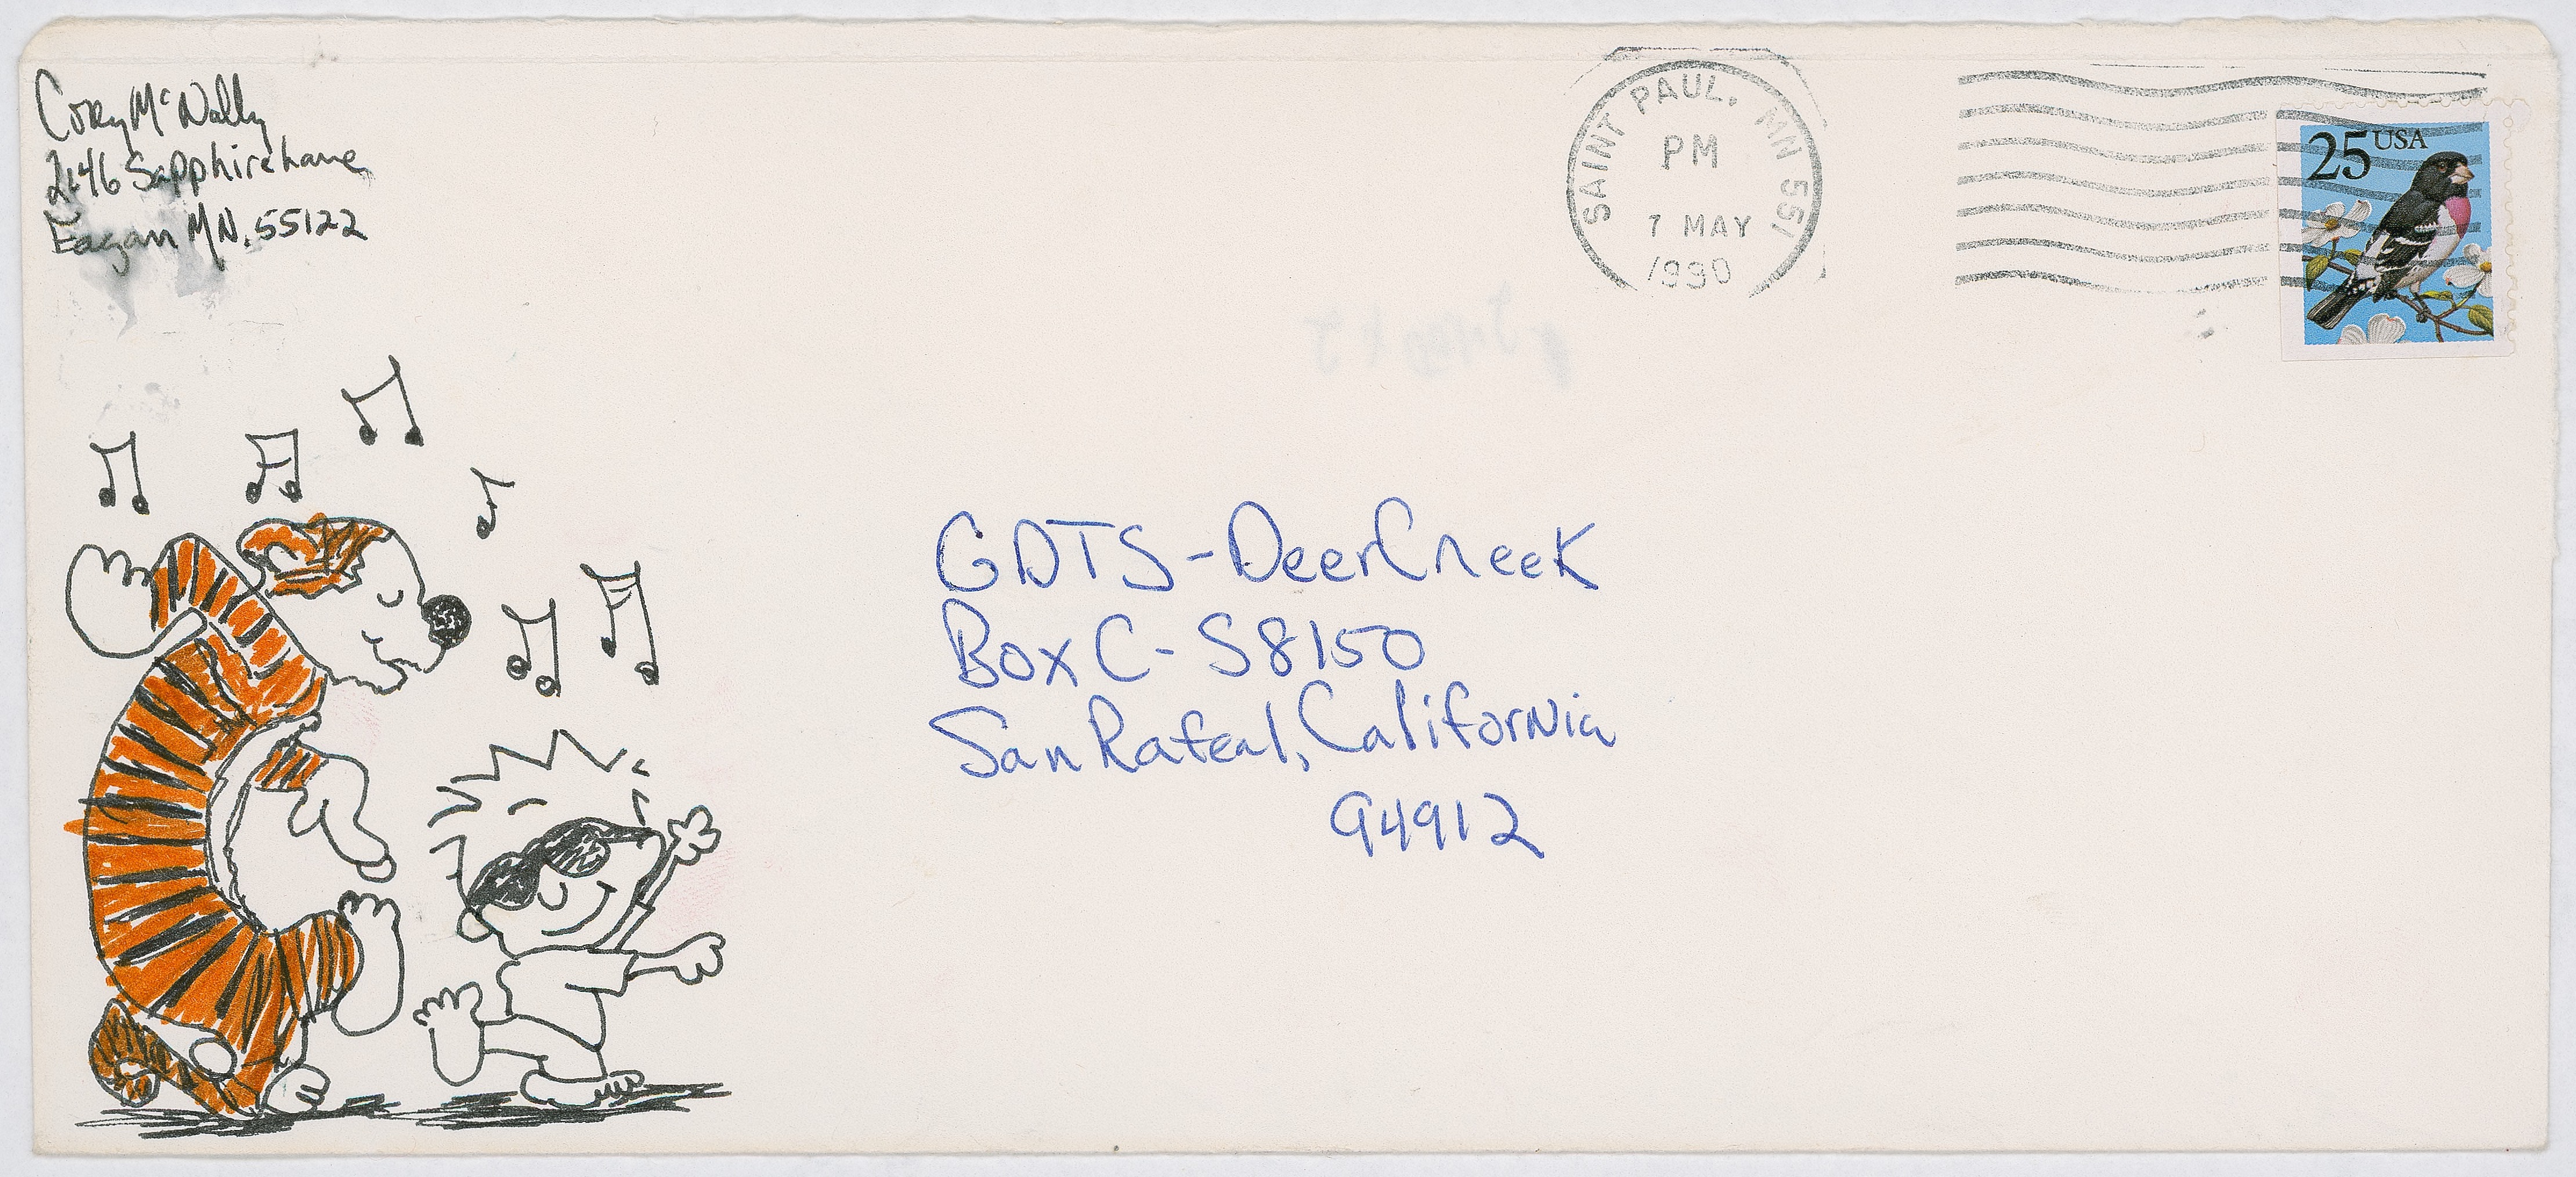 Cory McNally
2146 Sapphire Lane
Eagan MN. 55122
SAINT PAUL, MN 551
PM
7 MAY
1990
25 USA
GDTS-Deer Creek
Box C-S8150
San Rafeal, California
94912